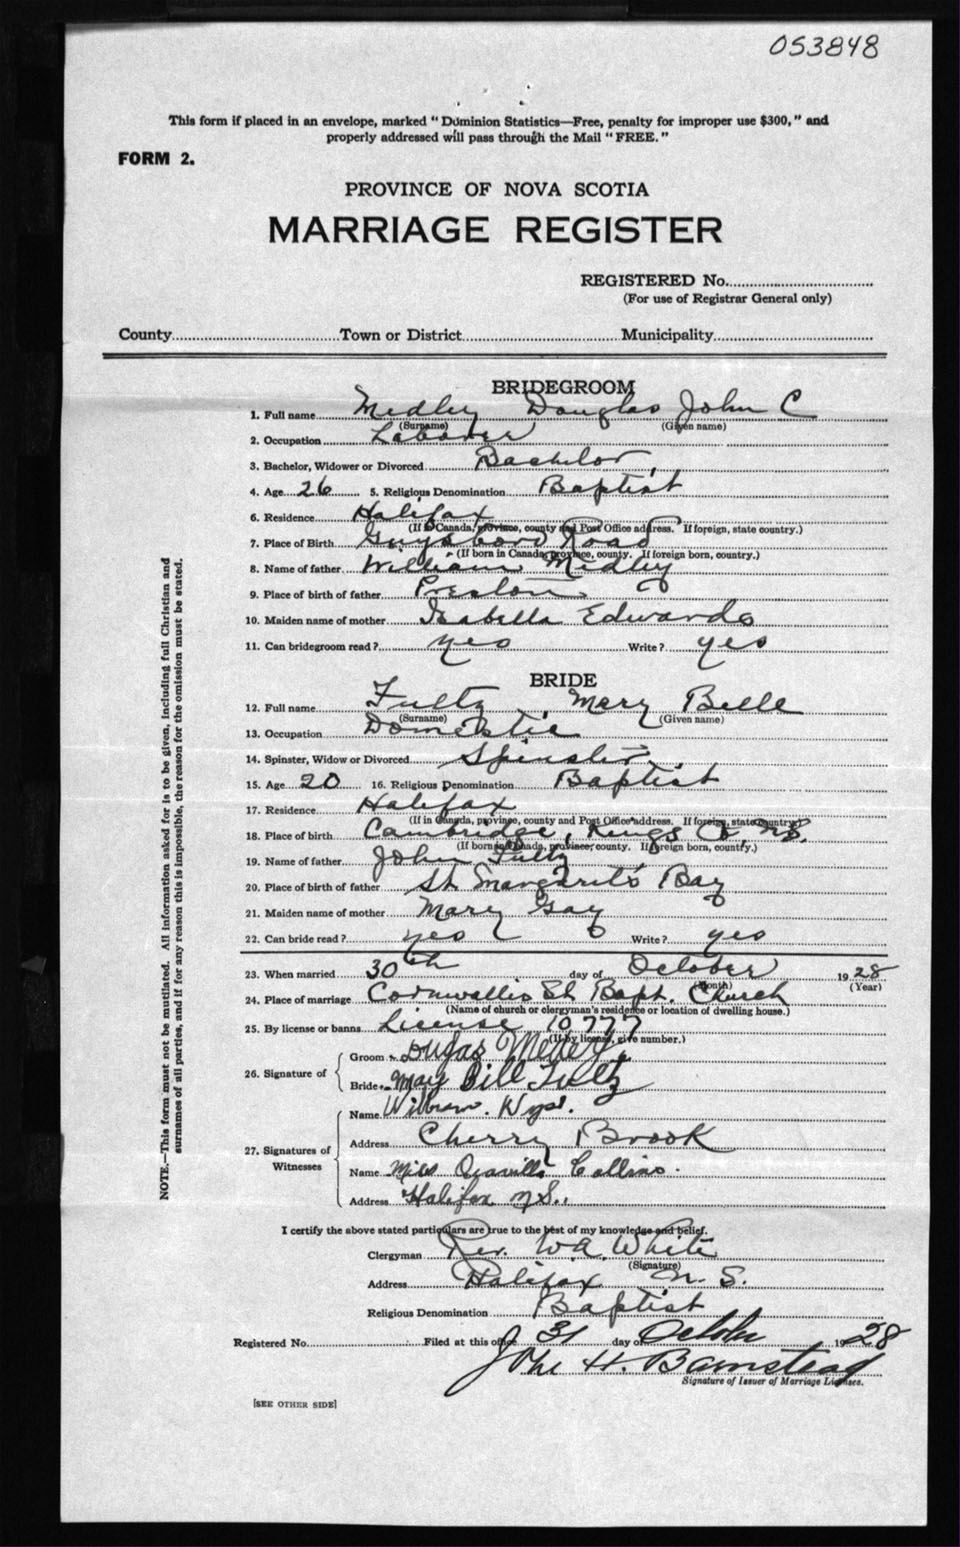 053848
This form if placed in an envelope, marked "Dominion Statistics—Free, penalty for improper use $300," and
properly addressed will pass through the Mail "FREE."
FORM 2.
PROVINCE OF NOVA SCOTIA
MARRIAGE REGISTER
REGISTERED No.
(For use of Registrar General only)
County Town or District Municipality
BRIDEGROOM
1. Full name Medley Douglas John C
(Surname) (Given name)
2. Occupation Laborer
3. Bachelor, Widower or Divorced Bachelor
4. Age 26 5. Religious Denomination Baptist
6. Residence Halifax
(If in Canada, province, county and Post Office address. If foreign, state country.)
7. Place of Birth Guysboro Road
(If born in Canada, province, county. If foreign born, country.)
8. Name of father William Medley
9. Place of birth of father Preston
10. Maiden name of mother Isabella Edwards
11. Can bridegroom read? yes Write? yes
BRIDE
12. Full name Fultz, Mary Belle
(Surname) (Given name)
13. Occupation Domestic
14. Spinster, Widow or Divorced Spinster
15. Age 20 16. Religious Denomination Baptist
17. Residence Halifax
(If in Canada, province, county and Post Office address. If foreign, state country.)
18. Place of birth Cambridge, Kings Co, N.S.
(If born in Canada, province, county. If foreign born, country.)
19. Name of father John Fultz
20. Place of birth of father St Margarets Bay
21. Maiden name of mother Mary Gay
22. Can bride read? yes Write? yes
23. When married 30th day of October 1928
(Month) (Year)
24. Place of marriage Cornwallis St Bapt. Church
(Name of church or clergyman's residence or location of dwelling house.)
25. By license or banns License 10777
(If by license, give number.)
26. Signature of
Groom
Bride May Bill Fultz
27. Signatures of Witnesses
Name
Address Cherry Brook
Name Miss Collins.
Address Halifax N.S.
I certify the above stated particulars are true to the best of my knowledge and belief.
Clergyman Rev. W A. White
(Signature)
Address Halifax N. S.
Religious Denomination Baptist
Registered No. Filed at this office 31 day of October 1928
John H. Barnstead
Signature of Issuer of Marriage Licenses.
[SEE OTHER SIDE]
NOTE.—This form must not be mutilated. All information asked for is to be given, including full Christian and
surnames of all parties, and if for any reason this is impossible, the reason for the omission must be stated.